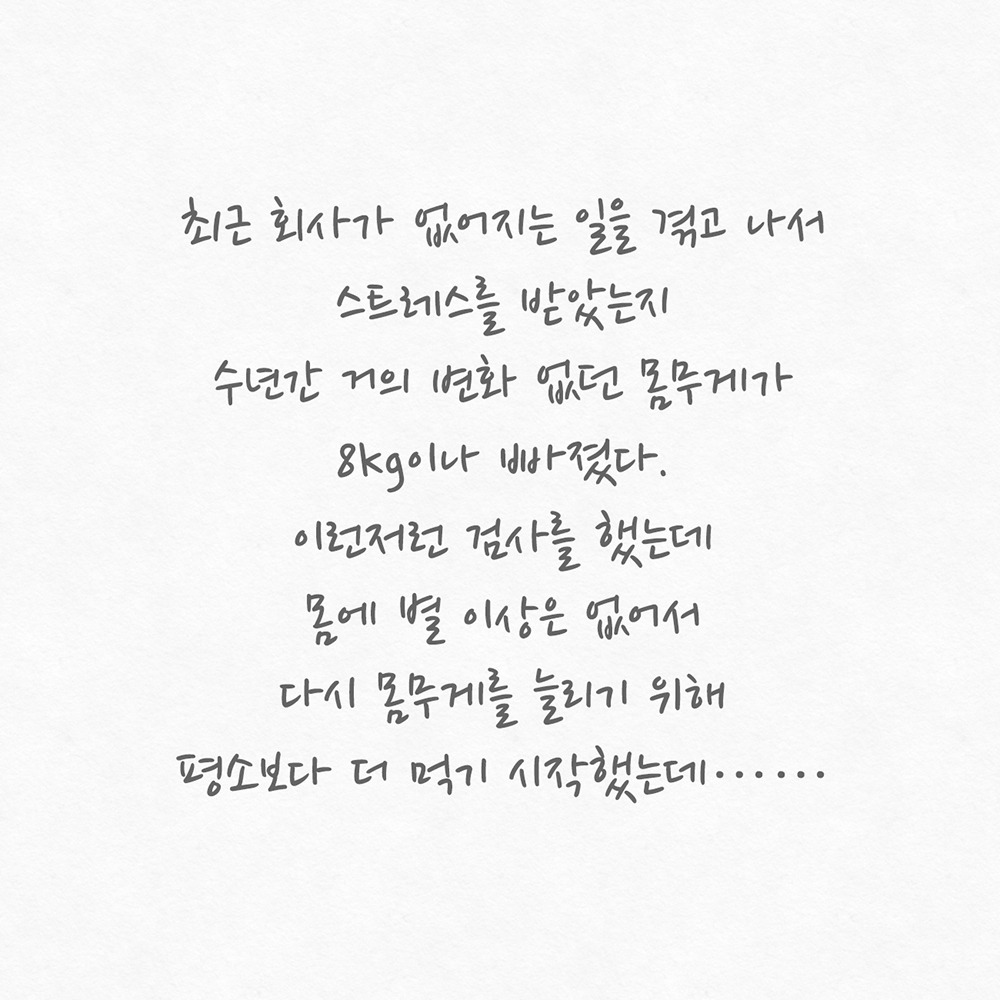 최근 회사가 없어지는 일을 겪고 나서
스트레스를 받았는지
수년간 거의 변화 없던 몸무게가
8kg이나 빠졌다.
이런저런 검사를 했는데
몸에 별 이상은 없어서
다시 몸무게를 늘리기 위해
평소보다 더 먹기 시작했는데······